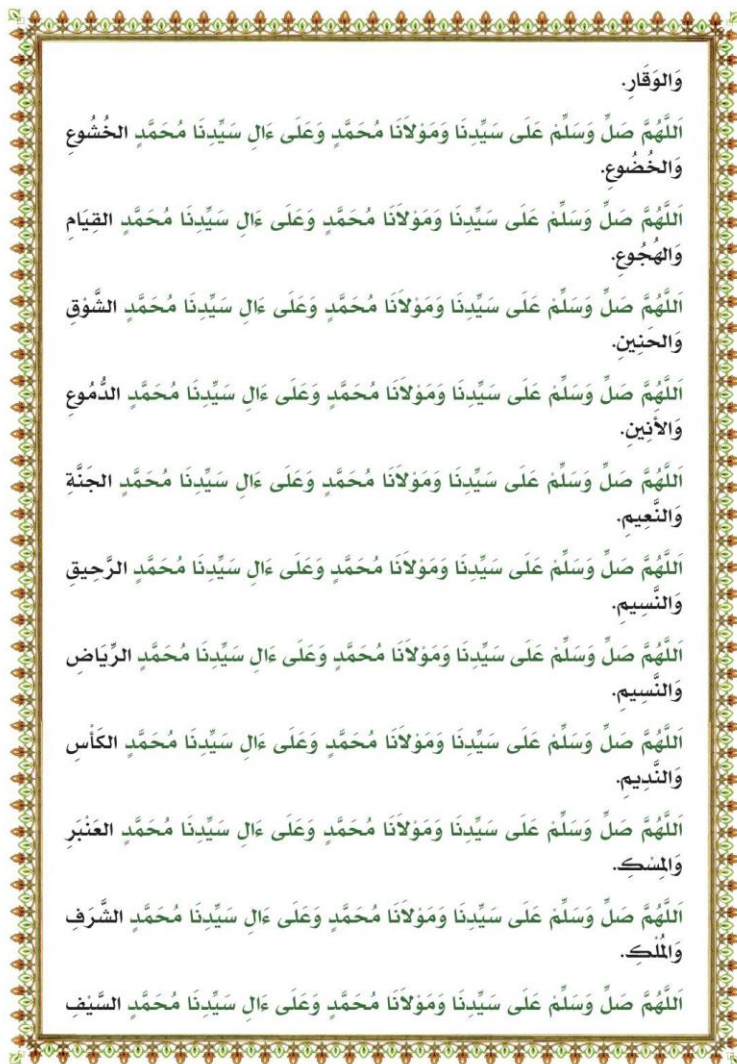 وَالوَقَارِ.
اَللَّهُمَّ صَلِّ وَسَلِّمْ عَلَى سَيِّدِنَا وَمَوْلاَنَا مُحَمَّدٍ وَعَلَى ءَالِ سَيِّدِنَا مُحَمَّدٍ الخُشُوعِ
وَالخُضُوعِ.
اَللَّهُمَّ صَلِّ وَسَلِّمْ عَلَى سَيِّدِنَا وَمَوْلاَنَا مُحَمَّدٍ وَعَلَى ءَالِ سَيِّدِنَا مُحَمَّدٍ القِيَامِ
وَالهُجُوعِ.
اَللَّهُمَّ صَلِّ وَسَلِّمْ عَلَى سَيِّدِنَا وَمَوْلاَنَا مُحَمَّدٍ وَعَلَى ءَالِ سَيِّدِنَا مُحَمَّدٍ الشَّوْقِ
وَالحَنِينِ.
اَللَّهُمَّ صَلِّ وَسَلِّمْ عَلَى سَيِّدِنَا وَمَوْلاَنَا مُحَمَّدٍ وَعَلَى ءَالِ سَيِّدِنَا مُحَمَّدٍ الدُّمُوعِ
وَالأَنِينِ.
اَللَّهُمَّ صَلِّ وَسَلِّمْ عَلَى سَيِّدِنَا وَمَوْلاَنَا مُحَمَّدٍ وَعَلَى ءَالِ سَيِّدِنَا مُحَمَّدٍ الجَنَّةِ
وَالنَّعِيمِ.
اَللَّهُمَّ صَلِّ وَسَلِّمْ عَلَى سَيِّدِنَا وَمَوْلاَنَا مُحَمَّدٍ وَعَلَى ءَالِ سَيِّدِنَا مُحَمَّدٍ الرَّحِيقِ
وَالنَّسِيمِ.
اَللَّهُمَّ صَلِّ وَسَلِّمْ عَلَى سَيِّدِنَا وَمَوْلاَنَا مُحَمَّدٍ وَعَلَى ءَالِ سَيِّدِنَا مُحَمَّدٍ الرِّيَاضِ
وَالنَّسِيمِ.
اَللَّهُمَّ صَلِّ وَسَلِّمْ عَلَى سَيِّدِنَا وَمَوْلاَنَا مُحَمَّدٍ وَعَلَى ءَالِ سَيِّدِنَا مُحَمَّدٍ الكَأْسِ
وَالنَّدِيمِ.
اَللَّهُمَّ صَلِّ وَسَلِّمْ عَلَى سَيِّدِنَا وَمَوْلاَنَا مُحَمَّدٍ وَعَلَى ءَالِ سَيِّدِنَا مُحَمَّدٍ العَنْبَرِ
وَالمِسْكِ.
اَللَّهُمَّ صَلِّ وَسَلِّمْ عَلَى سَيِّدِنَا وَمَوْلاَنَا مُحَمَّدٍ وَعَلَى ءَالِ سَيِّدِنَا مُحَمَّدٍ الشَّرَفِ
وَالمُلْكِ.
اَللَّهُمَّ صَلِّ وَسَلِّمْ عَلَى سَيِّدِنَا وَمَوْلاَنَا مُحَمَّدٍ وَعَلَى ءَالِ سَيِّدِنَا مُحَمَّدٍ السَّيْفِ